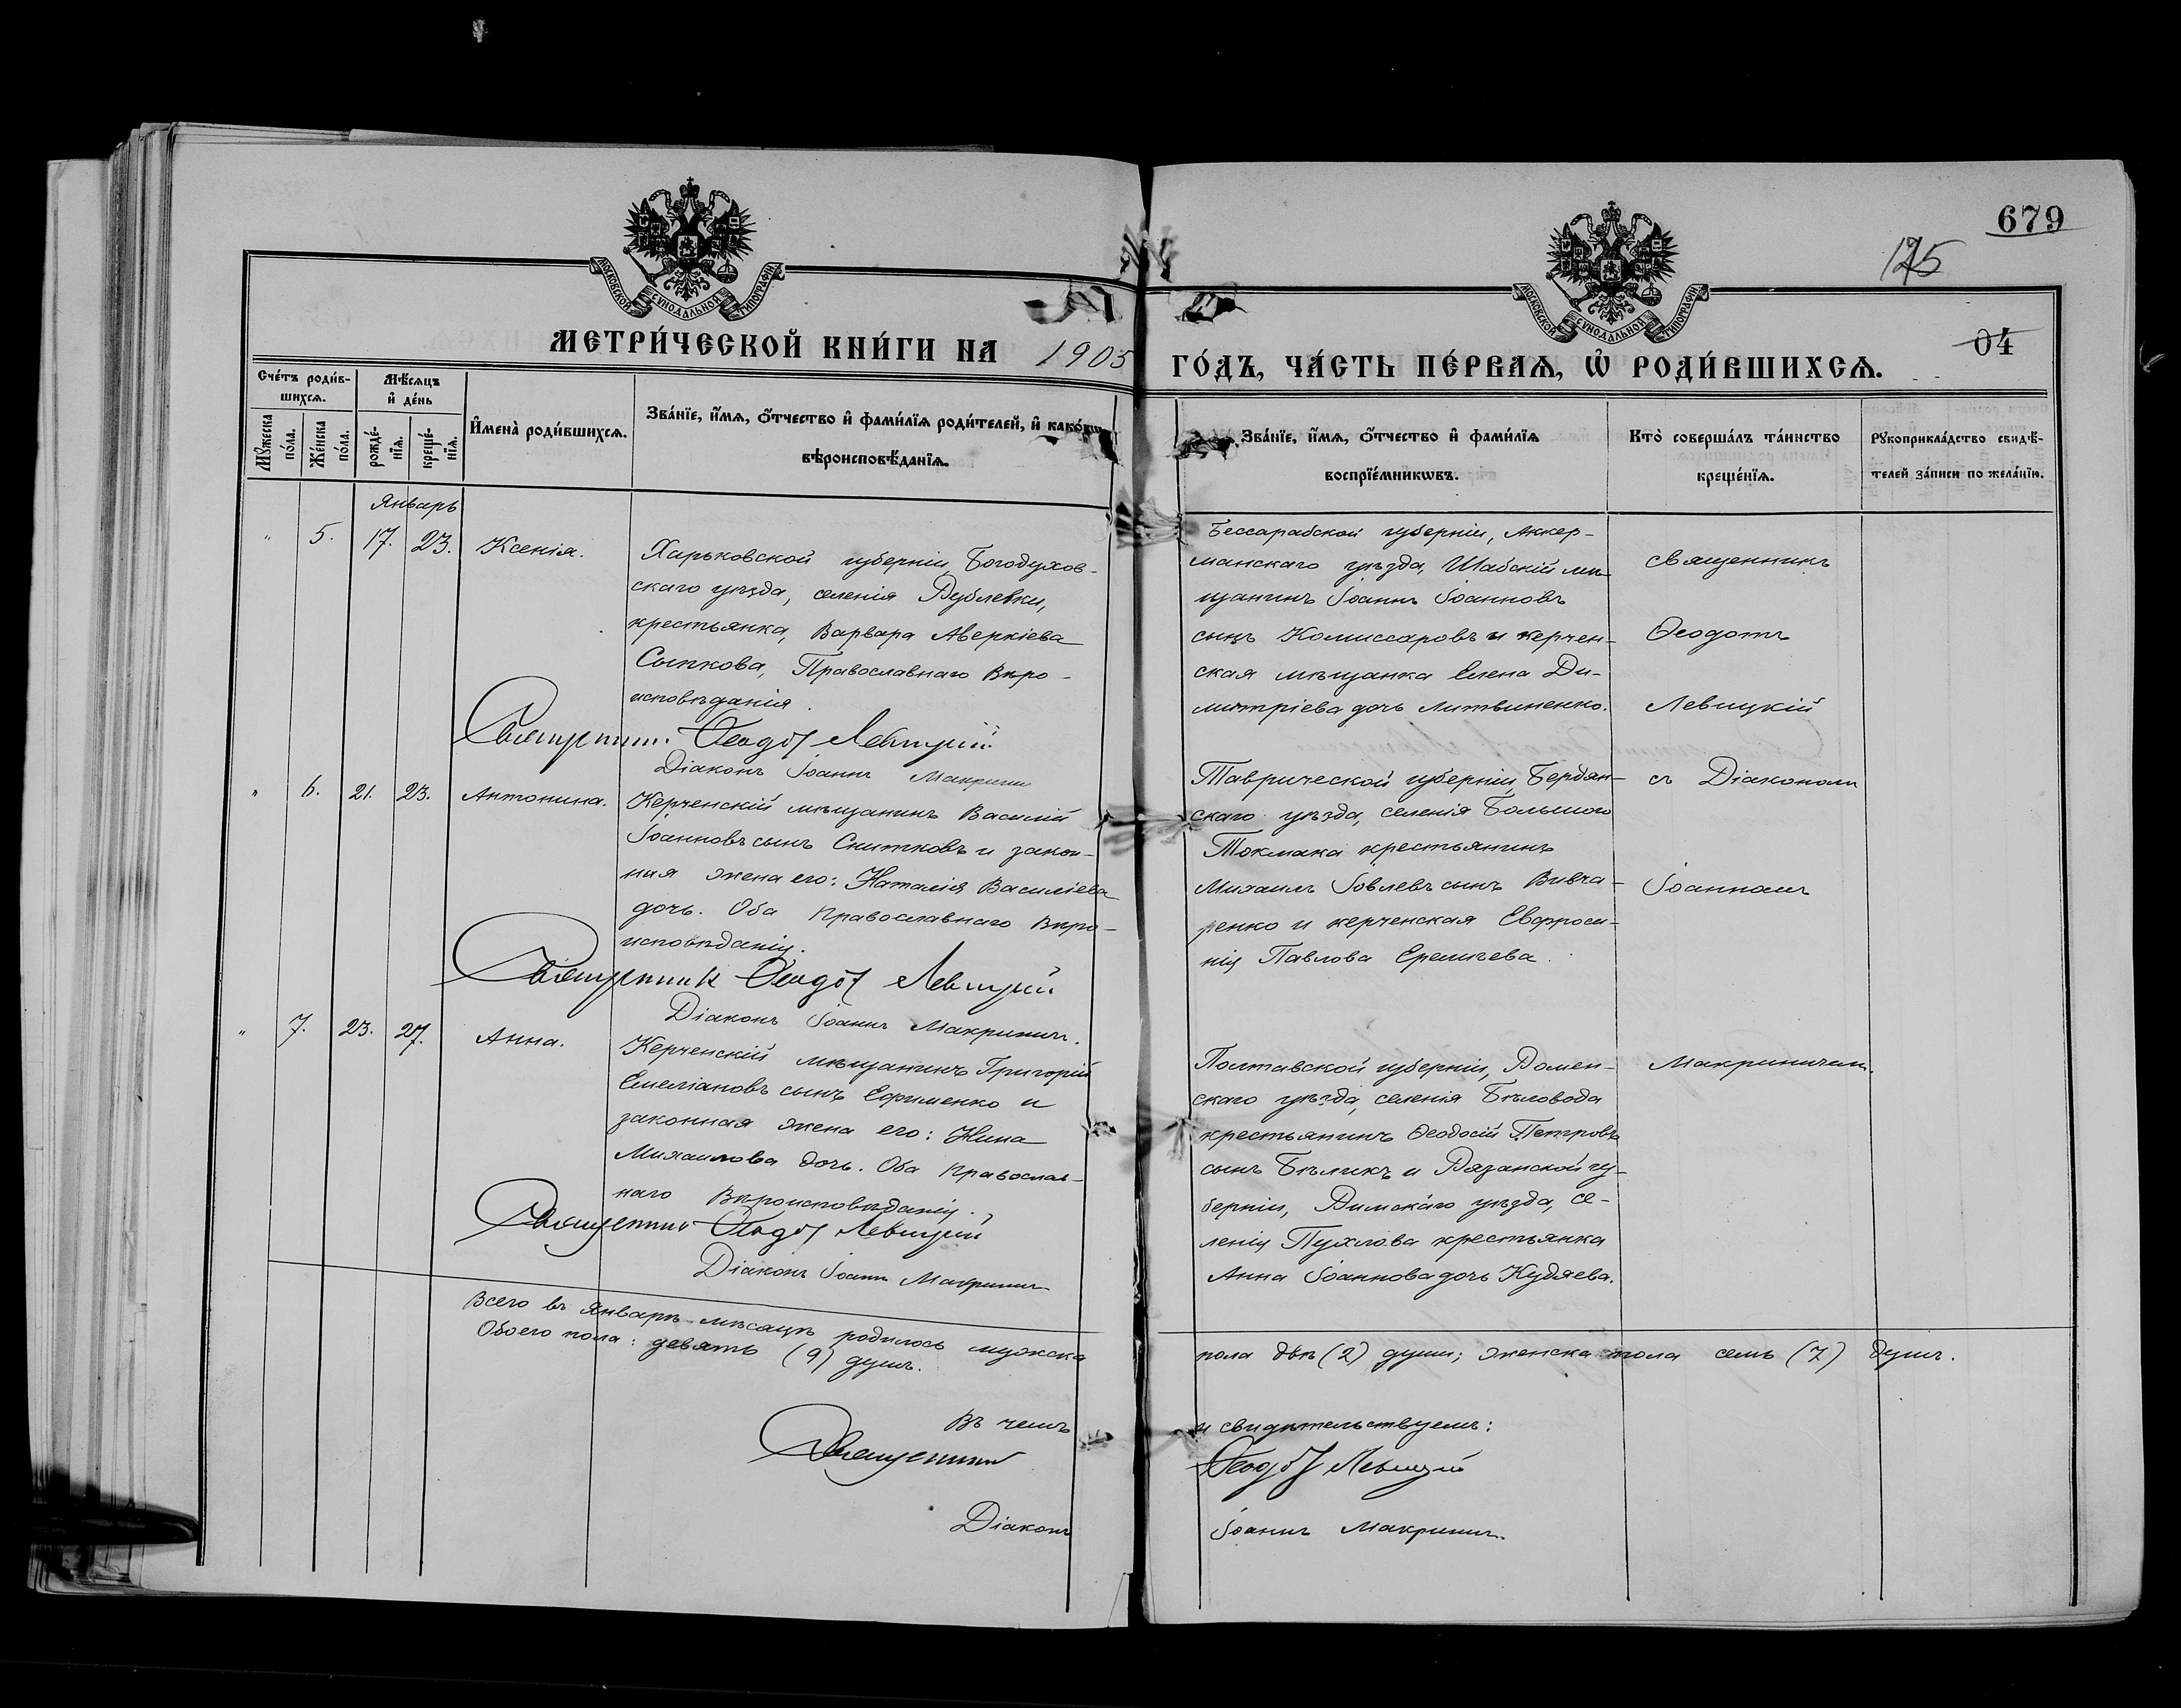 679
125
04
МОСКОВСКОЙ СѴНОДАЛЬНОЙ ТИПОГРАФІИ
МОСКОВСКОЙ СѴНОДАЛЬНОЙ ТИПОГРАФІИ
МЕТРИ́ЧЕСКОЙ КНИ́ГИ НА 1905 ГО́ДЪ, ЧА́СТЬ ПЕ́РВАѦ, Ѡ҆ РОДИ́ВШИХСѦ.
Сче́тъ роди́в-
шихсѧ.
Мꙋ́жеска по́ла.
Же́нска по́ла.
Мѣ́сѧцъ
и҆ де́нь
рожде́-
нїѧ.
креще́-
нїѧ.
И҆мена̀ роди́вшихсѧ.
Зва́нїе, и҆́мѧ, ѻ҆́тчество и҆ фами́лїѧ роди́телей, и҆ како́вѡ
вѣроисповѣ́данїѧ.
Зва́нїе, и҆́мѧ, ѻ҆́тчество и҆ фами́лїѧ
воспрїе́мникѡвъ.
Кто̀ соверша́лъ та́инство
креще́нїѧ.
Рꙋкоприкла́дство свидѣ́-
телей за́писи по жела́нїю.
Январь
" 5. 17. 23. Ксенія.
Харьковской губерніи, Богодухов-
скаго уѣзда, селенія Рублевки,
крестьянка, Варвара Аверкіева
Сыпкова, Православнаго Вѣро-
исповѣданія.
Священник Ѳеодот Левицкій
Діаконъ Іоаннъ Макринич
Бессарабской губерніи, Аккер-
манскаго уѣзда, Шабскій мѣ-
щанинъ Іоаннъ Іоанновъ
сынъ Комиссаровъ и керчен-
ская мѣщанка Елена Ди-
митріева дочь Литвиненко.
Священникъ
Ѳеодотъ
Левицкій
" 6. 21. 23. Антонина.
Керченскій мѣщанинъ Василій
Іоанновъ сынъ Снитковъ и закон-
ная жена его: Наталія Василіева
дочь. Оба Православнаго Вѣро-
исповѣданія.
Священник Ѳеодот Левицкій
Діаконъ Іоаннъ Макринич.
Таврической губерніи, Бердян-
скаго уѣзда, селенія Большого
Токмака крестьянинъ
Михаилъ Іовлевъ сынъ Вивча-
ренко и керченская Евфроси-
нія Павлова Еремчева.
съ Діакономъ
Іоанномъ
" 7. 23. 27. Анна.
Керченскій мѣщанинъ Григорій
Емеліановъ сынъ Ефименко и
законная жена его: Нина
Михаилова дочь. Оба Православ-
наго Вѣроисповѣданія.
Священник Ѳеодот Левицкій
Діаконъ Іоаннъ Макринич
Полтавской губерніи, Ромен-
скаго уѣзда, селенія Бѣловода
крестьянинъ Ѳеодосій Петровъ
сынъ Бѣликъ и Рязанской гу-
берніи, Римскаго уѣзда, се-
ленія Пухлова крестьянка
Анна Іоаннова дочь Кудяева.
Макриничемъ.
Всего въ Январѣ мѣсяцѣ родилось мужска пола двѣ (2) души; женска пола семь (7) душъ.
Обоего пола: девять (9) душъ.
Въ чемъ и свидѣтельствуемъ:
Священник Ѳеодот Левицкій
Діаконъ Іоаннъ Макринич.